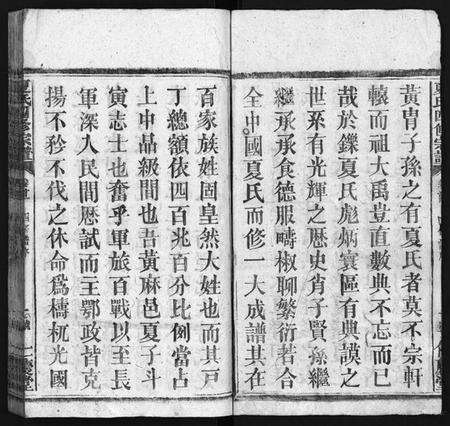 黃胄子孫之有夏氏者莫不宗軒
轅而祖大禹豈直數典不忘而已
哉於鑠夏氏彪炳寰區有典謨之
世系有光輝之歴史肖子賢孫繼
繼承承食德服疇椒聊繁衍若合
全中國夏氏而修一大成譜其在
百家族姓固皇然大姓也而其戸
丁總額依四百兆百分比例當占
上中品級間也吾黃麻邑夏子斗
寅志士也奮乎軍旅百戰以至長
軍深人民間歴試而主鄂政井克
揚不矜不伐之休命爲檮杌光國